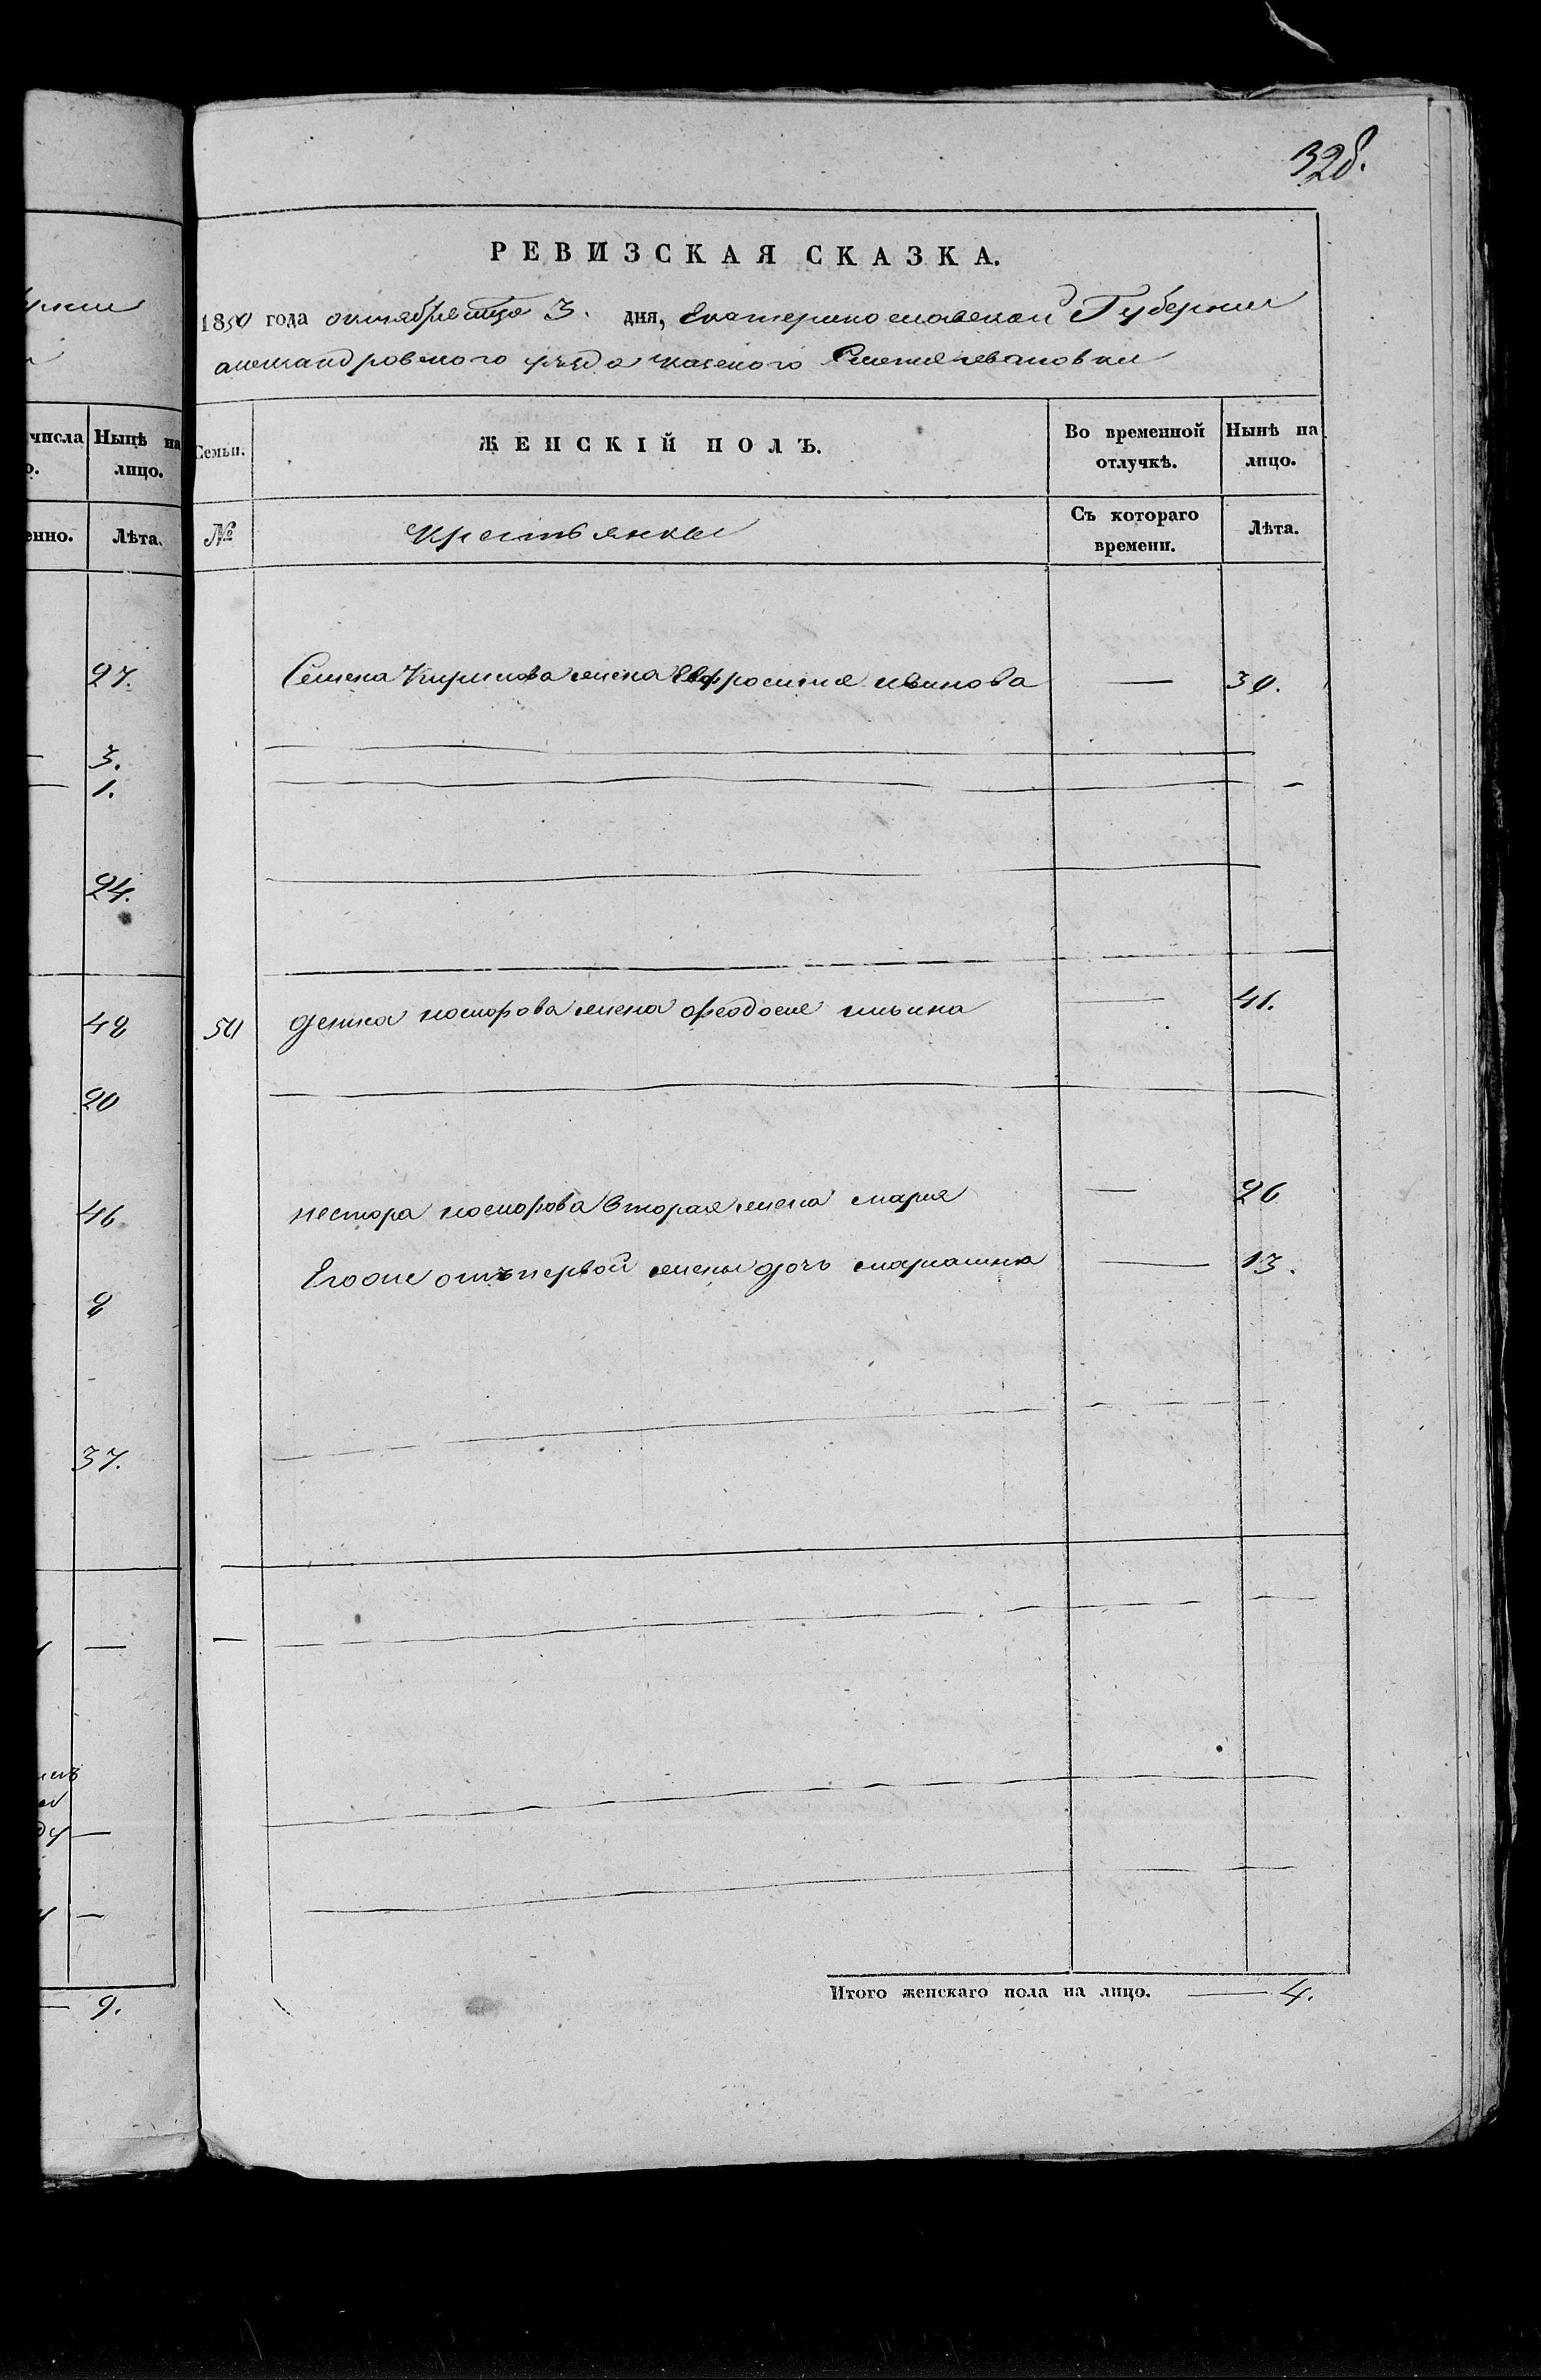 328.
РЕВИЗСКАЯ СКАЗКА.
1850 года октября мца 3. дня, Екатеринославской Губернии
александровского уезда казеного Селения ивановки
Семьи. ЖЕНСКІЙ ПОЛЪ. Во временной отлучкѣ. Нынѣ на лицо.
№ крестьянки Съ котораго времени. Лѣта.
Семена Кирилова жена Евфросиния иванова — 30.
50 демка несторова жена феодосия ильина — 41.
нестора несторова вторая жена мария — 26
Егоже отъ первой жены дочь мариамна — 13.
Итого женскаго пола на лицо. — 4.
числа Нынѣ на лицо.
Лѣта.
27.
3.
1.
24.
48
20
46
8
37.
9.